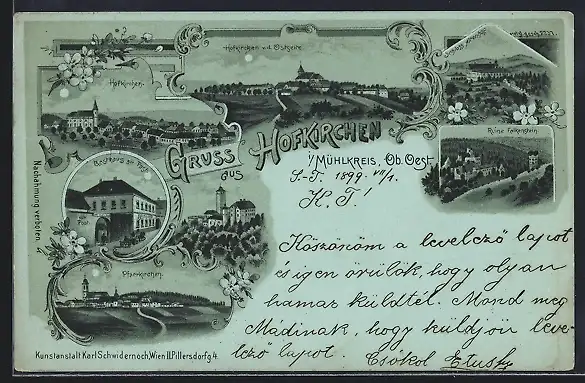 Hofkirchen v. d. Ostseite
Hofkirchen.
Ruine Falkenstein
Gruss
aus
Hofkirchen
i/Mühlkreis, Ob. Oest.
Post
Pfarrkirchen.
Nachahmung verboten.
Kunstanstalt Karl Schwidernoch, Wien II. Pillersdorfg. 4.
S-T. 1899 VII/1.
K. T.!
Köszönöm a levelező lapot
és igen örülök, hogy olyan
hamar küldtél. Mond meg
Mádinak, hogy küldjön leve-
lező lapot. Csókol Etusk